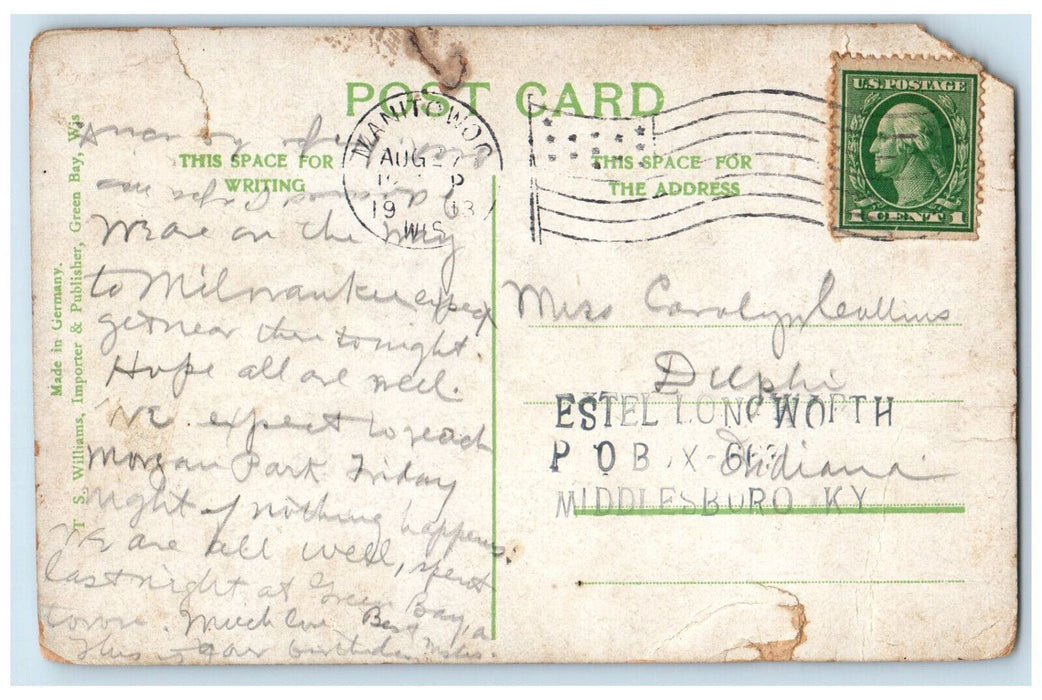 POST CARD
THIS SPACE FOR
WRITING
THIS SPACE FOR
THE ADDRESS
U.S. POSTAGE
1 CENT 1
MANITOWOC
AUG 27
P
1913
WIS
Made in Germany.
T. S. Williams, Importer & Publisher, Green Bay, Wis
We are on the way
to Milwaukee expect
get near there tonight.
Hope all are well.
We expect to reach
Morgan Park Friday
night if nothing happens.
We are all well, spent
last night at Green Bay, a
town. Much love
This is your birthday
Miss Carolyn
Delphi
Indiana
ESTEL LONGWORTH
P O BOX
MIDDLESBORO KY